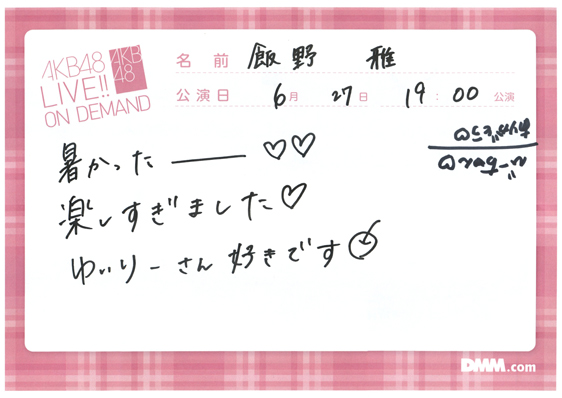 AKB48
LIVE!!
ON DEMAND
AKB
48
名 前 飯野 雅
公演日 6月 27日 19:00 公演
暑かった ――― ♡♡
楽しすぎました♡
ゆいりーさん 好きです
DMM.com